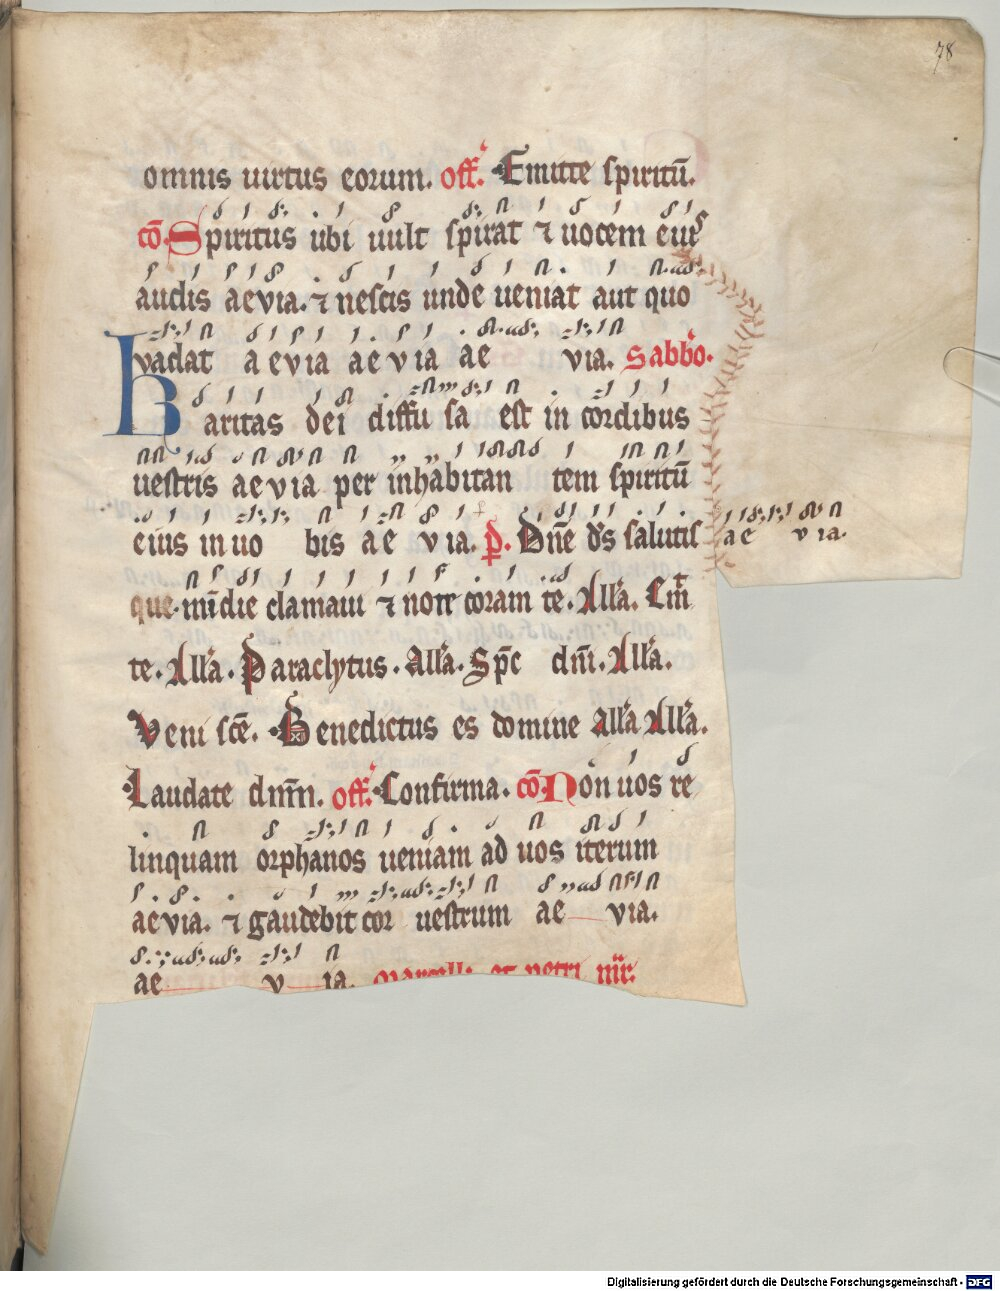 78
omnis uirtus eorum. off. Emitte spiritū.
cō. Spiritus ubi uult spirat ⁊ uocem eius
audis aevia. ⁊ nescis unde ueniat aut quo
vadat a evia aevia ae via. Sabbo.
Karitas dei diffu sa est in cordibus
uestris aevia per inhabitan tem spiritū
eius in uo bis ae via. p̄. Dn̄e ds̄ salutis ae via.
que. in die clamaui ⁊ noct coram te. All'a. Em̄
te. All'a. Paraclytus. All'a. Sp̄c dn̄i. All'a.
Veni sc̄e. Benedictus es domine All'a All'a.
Laudate dnm̄. off. Confirma. cō. Non uos re
linquam orphanos ueniam ad uos iterum
aevia. ⁊ gaudebit cor uestrum ae via.
ae v ia. Marcell. et petri mr̄.
Digitalisierung gefördert durch die Deutsche Forschungsgemeinschaft - DFG